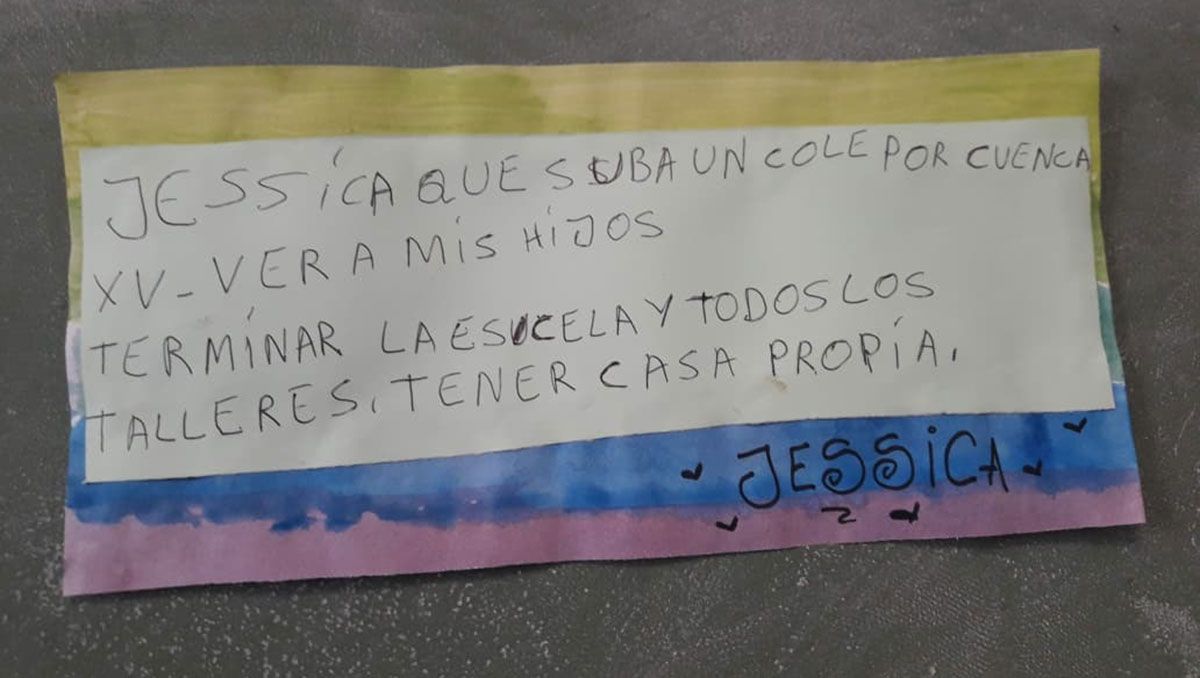 JESSICA QUE SUBA UN COLE POR CUENCA
XV - VER A MIS HIJOS
TERMINAR LA ESUCELA Y TODOS LOS
TALLERES. TENER CASA PROPIA.
JESSICA